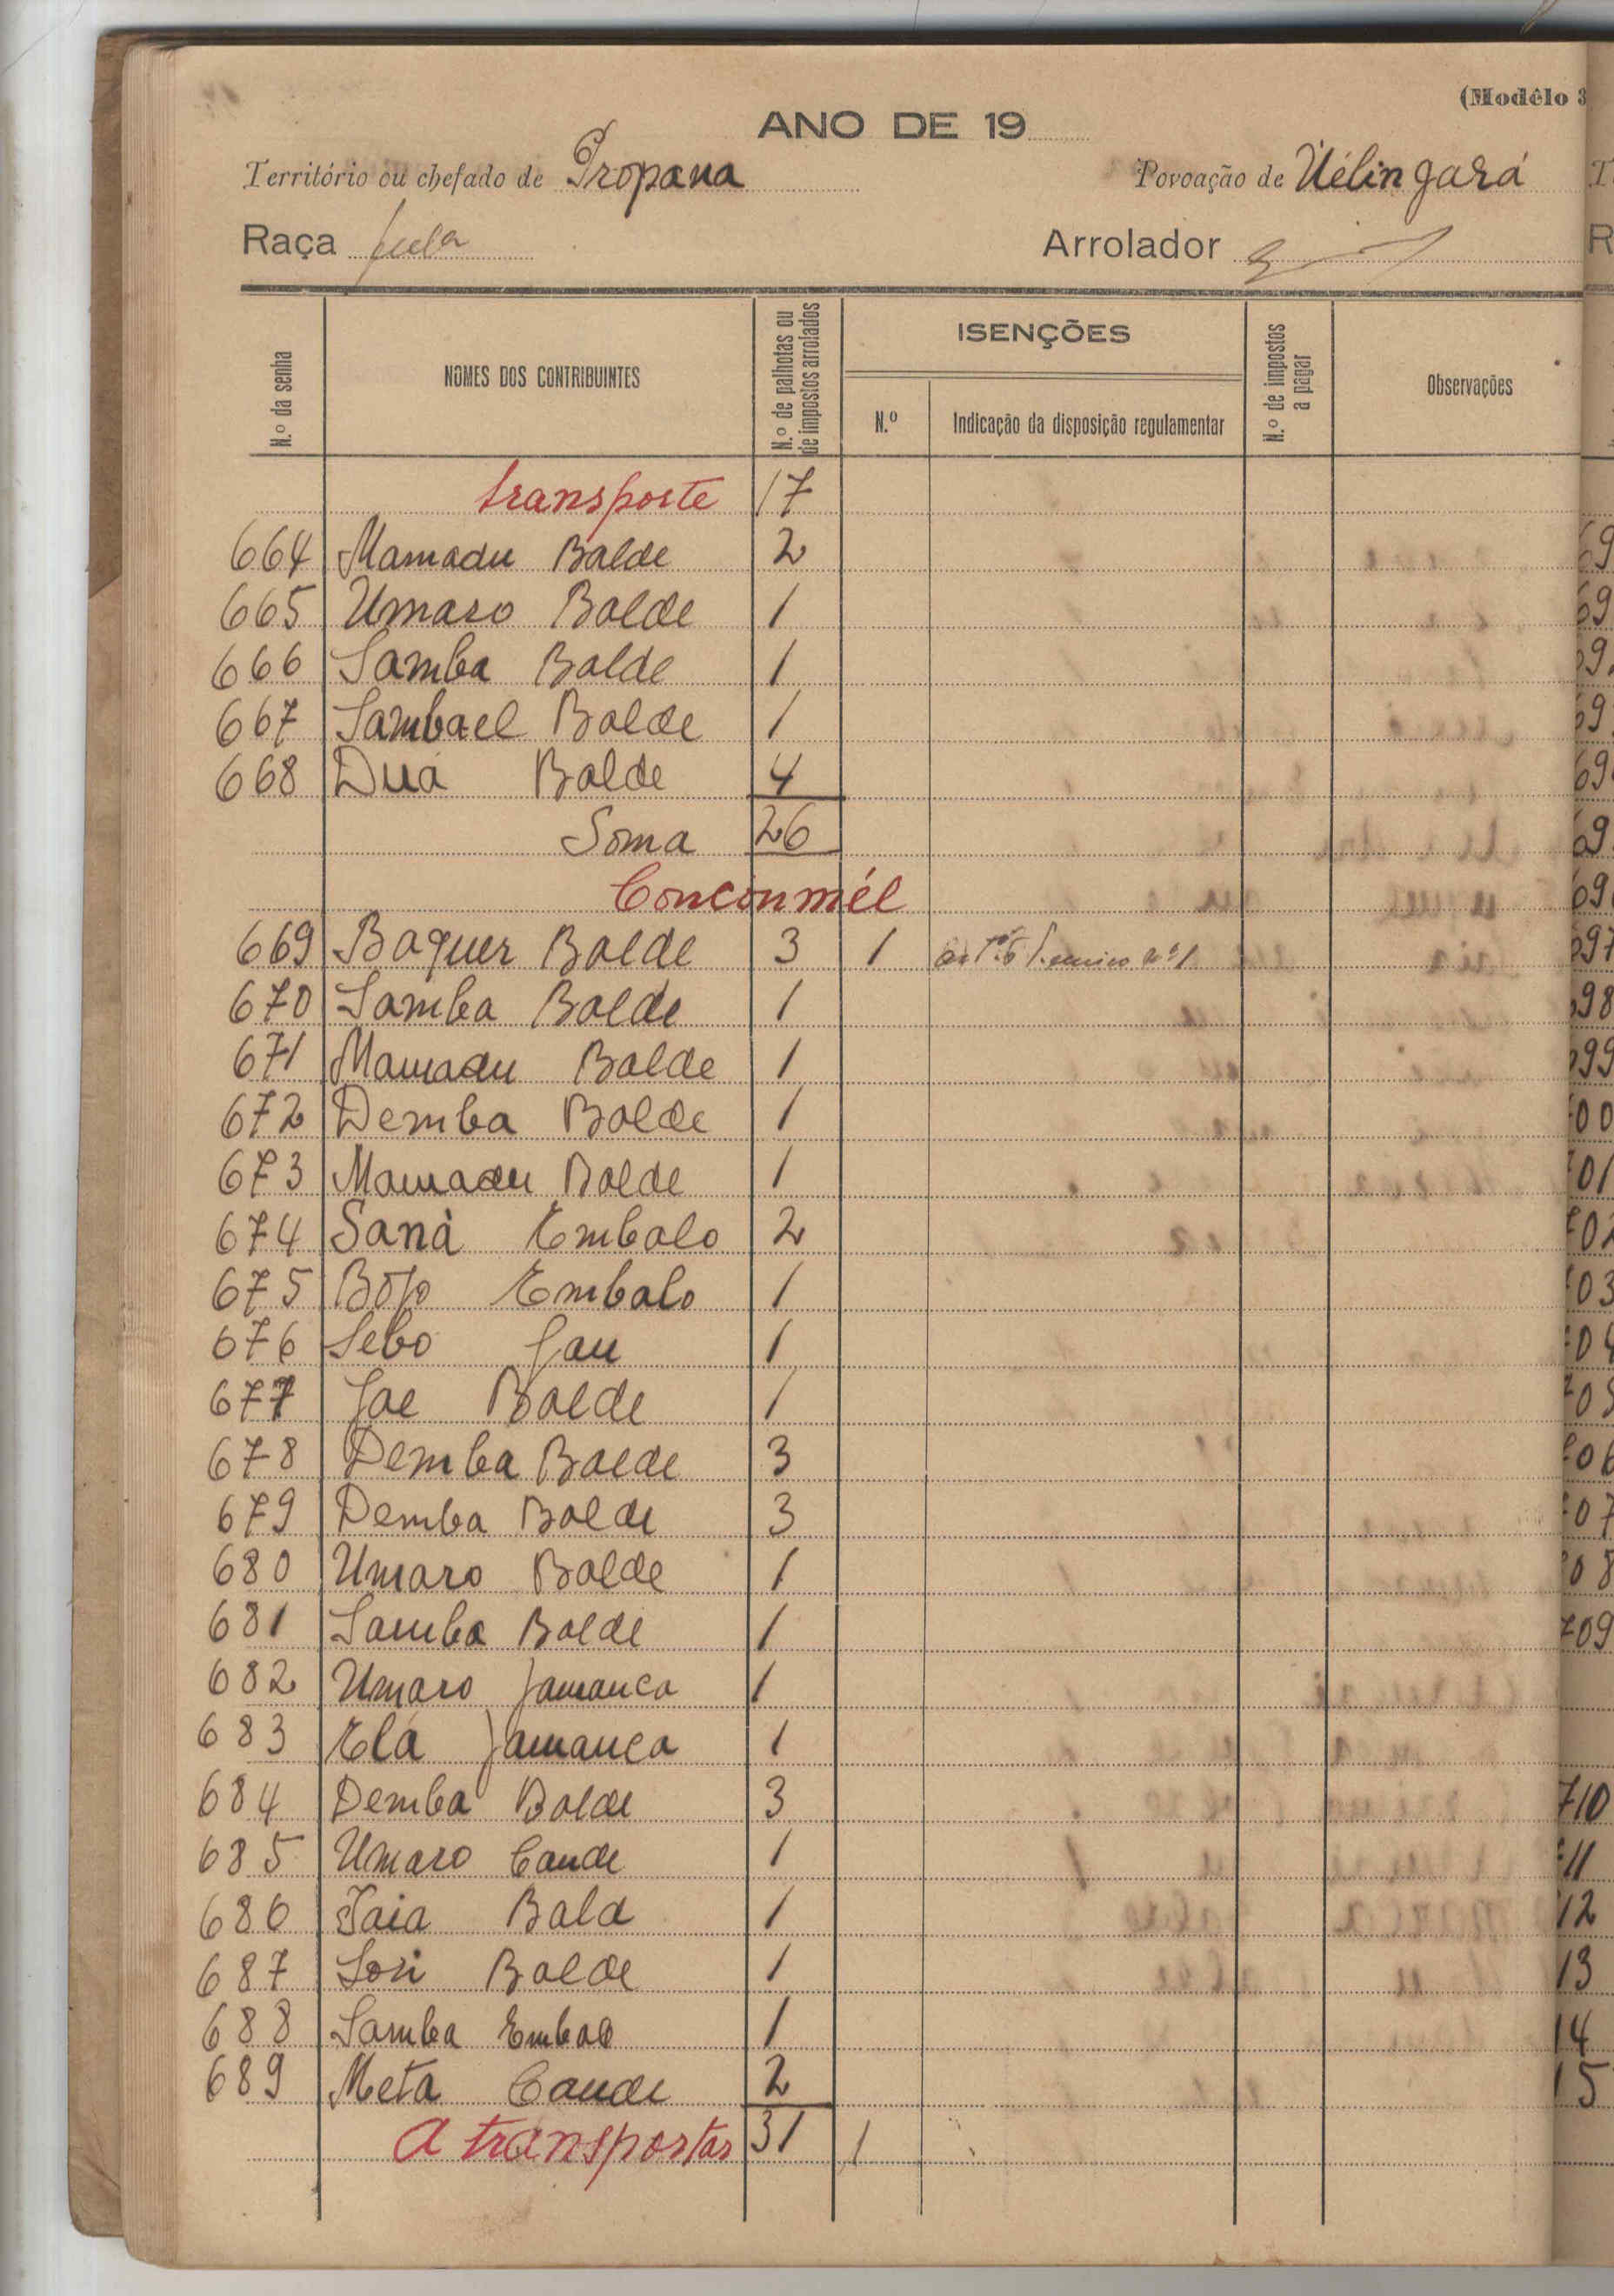 (Modêlo 3
ANO DE 19
Território ou chefado de Propana Povoação de Uélingará
Raça fula Arrolador
N.º da senha
NOMES DOS CONTRIBUINTES
N.º de palhotas ou de impostos arrolados
ISENÇÕES
N.º
Indicação da disposição regulamentar
N.º de impostos a pagar
Observações
transporte 17
664 Mamadu Balde 2
665 Umaro Balde 1
666 Samba Balde 1
667 Sambael Balde 1
668 Duá Balde 4
Soma 26
Conconmél
669 Baquer Balde 3 1 n.º 1
670 Samba Balde 1
671 Mamadu Balde 1
672 Demba Balde 1
673 Mamadu Balde 1
674 Saná Embalo 2
675 Bojo Embalo 1
676 Sebo Jau 1
677 Jae Balde 1
678 Demba Balde 3
679 Demba Balde 3
680 Umaro Balde 1
681 Samba Balde 1
682 Umaro Jamanca 1
683 Elá Jamanca 1
684 Demba Balde 3
685 Umaro Cande 1
686 Jaia Bald 1
687 Sori Balde 1
688 Samba Embalo 1
689 Meta Cande 2
A transportar 31 1